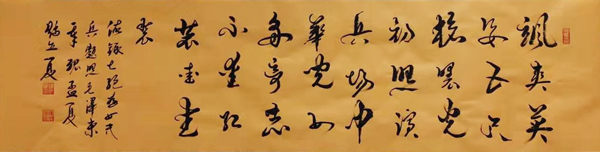 颯爽英
姿五尺
槍曙光
初照演
兵場中
華兒女
多奇志
不愛紅
裝愛武
裝
七絕為女民
兵題照毛澤東
孟夏